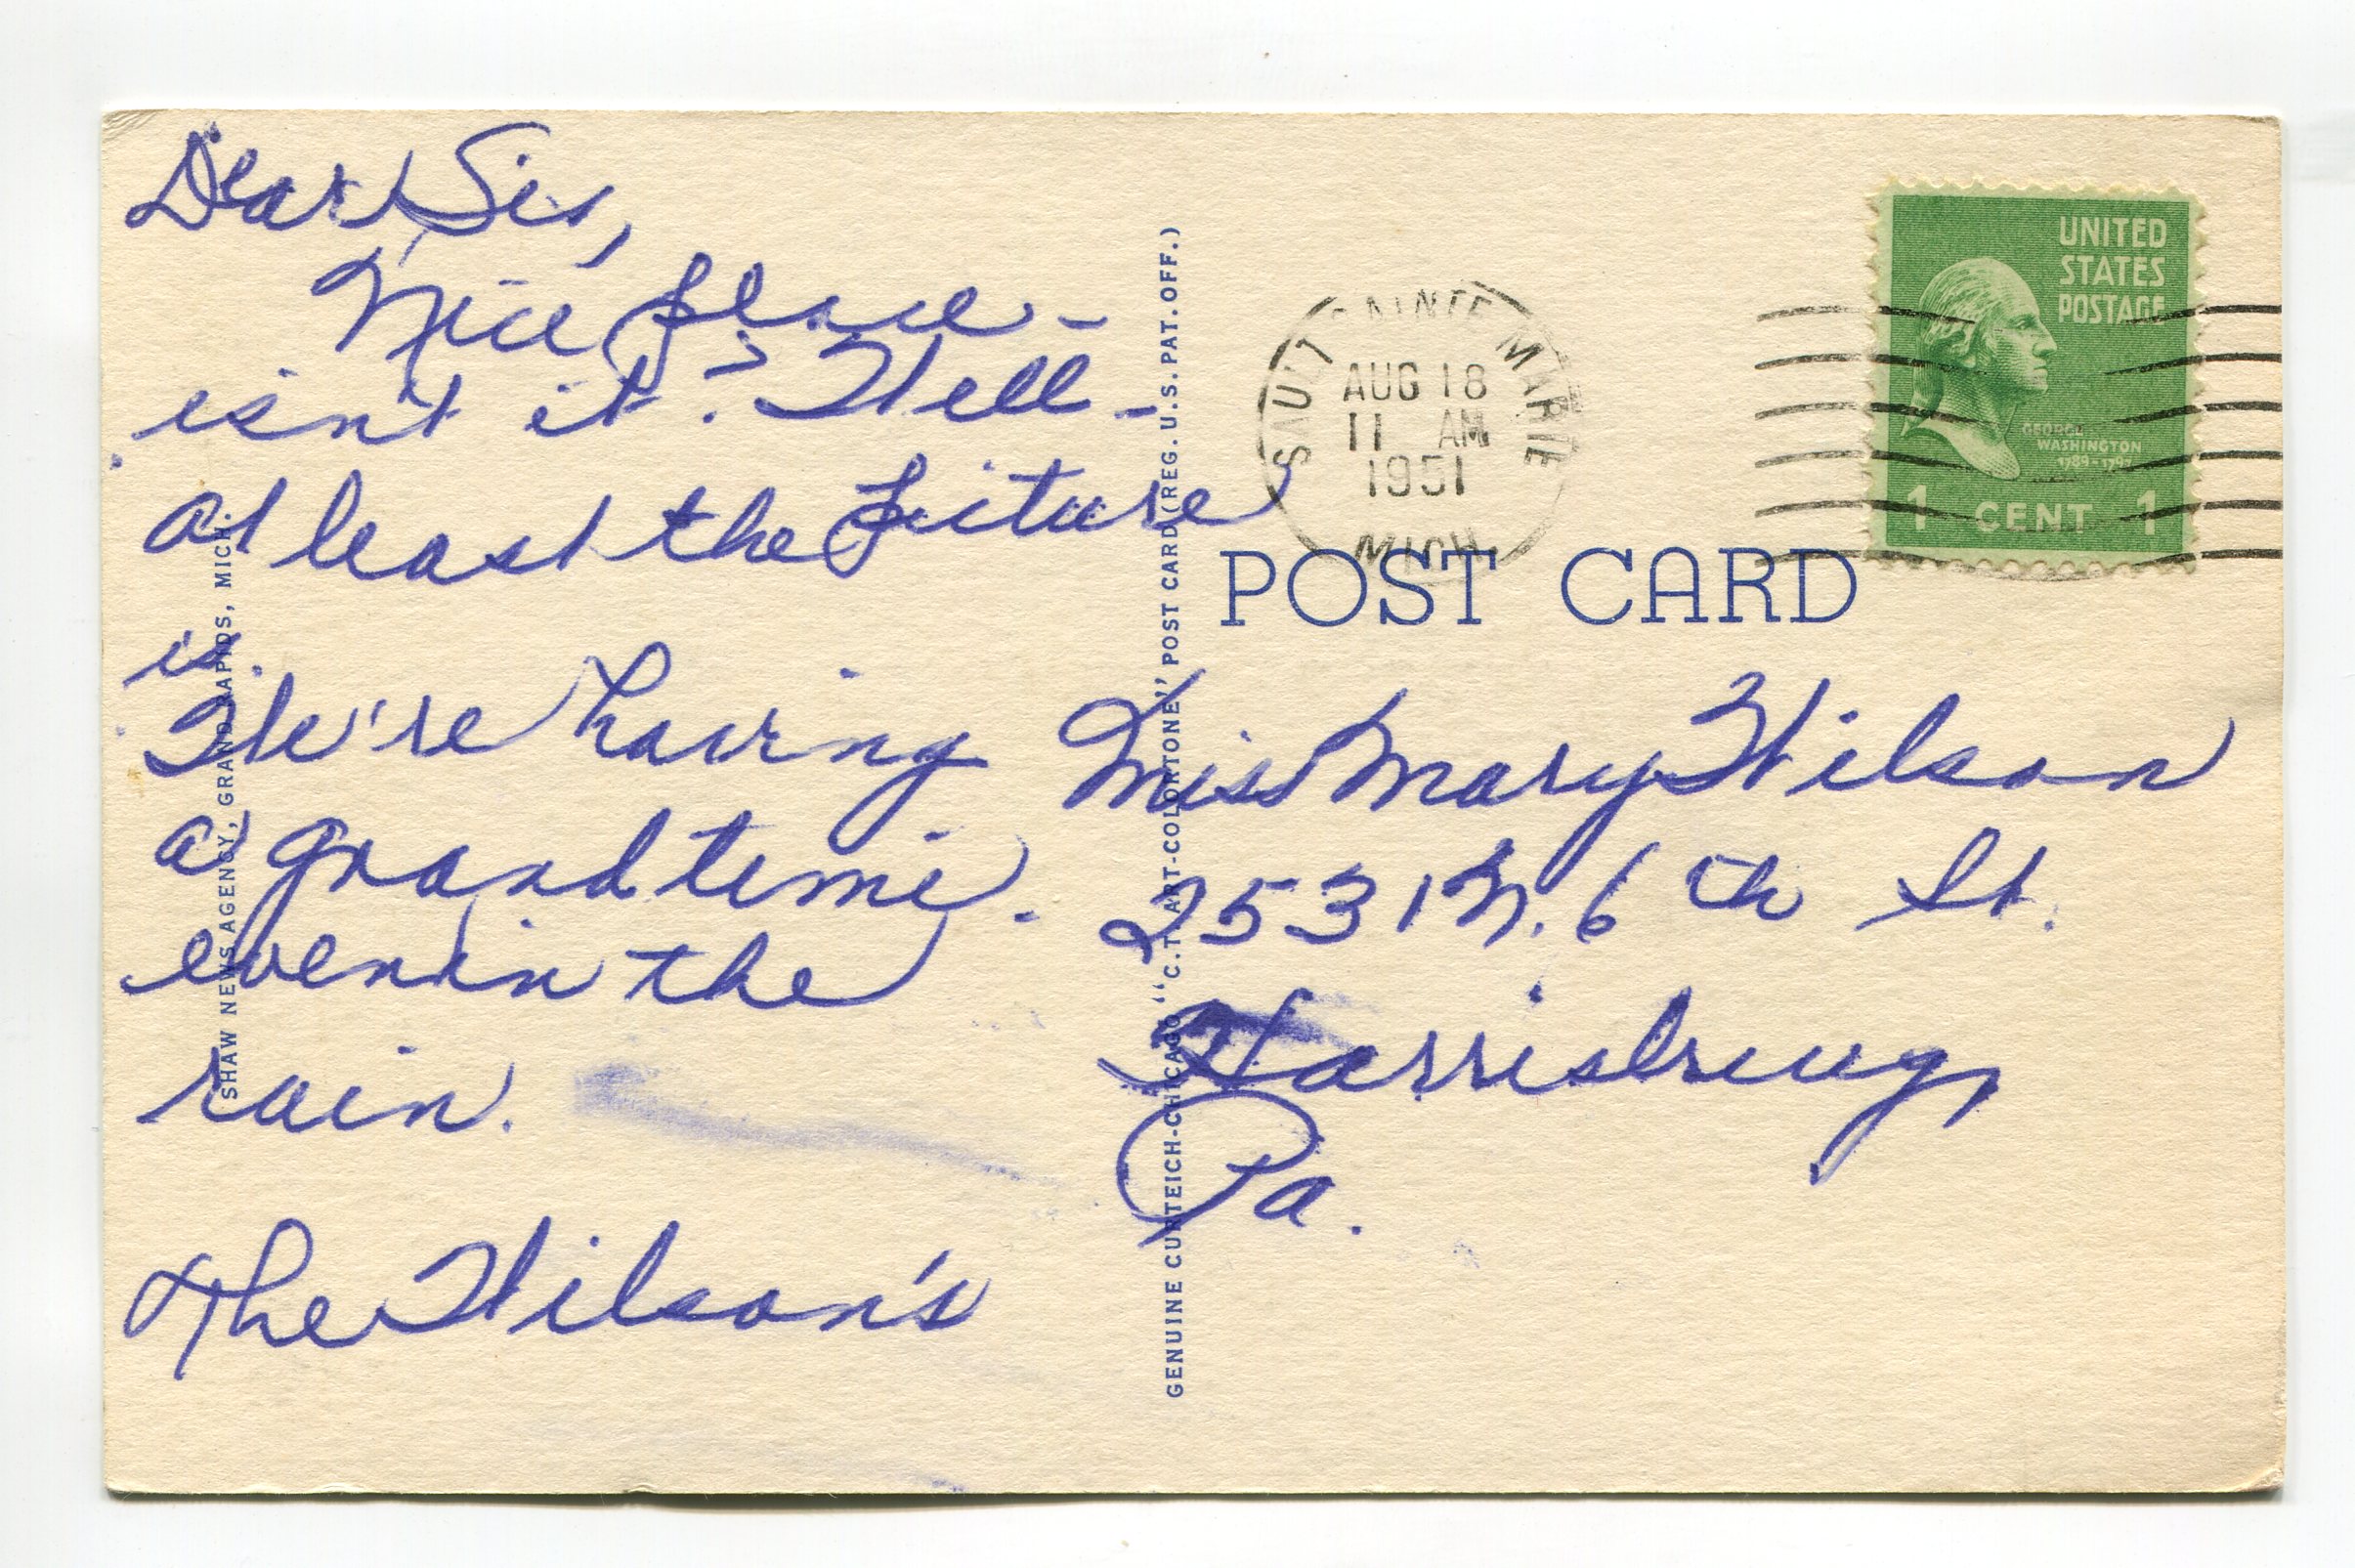 Dear Sis,
Nice place -
isn't it? Well -
at least the picture
is.
We're having
a grand time.
even in the
rain.
The Wilson's
SHAW NEWS AGENCY, GRAND RAPIDS, MICH.
GENUINE CURTEICH-CHICAGO "C.T. ART-COLORTONE" POST CARD (REG. U.S. PAT. OFF.)
SAULT SAINTE MARIE
AUG 18
11 AM
1951
MICH.
UNITED
STATES
POSTAGE
GEORGE
WASHINGTON
1789-1797
1 CENT 1
POST CARD
Miss Mary Wilson
2531 N. 6th St.
Harrisburg,
Pa.